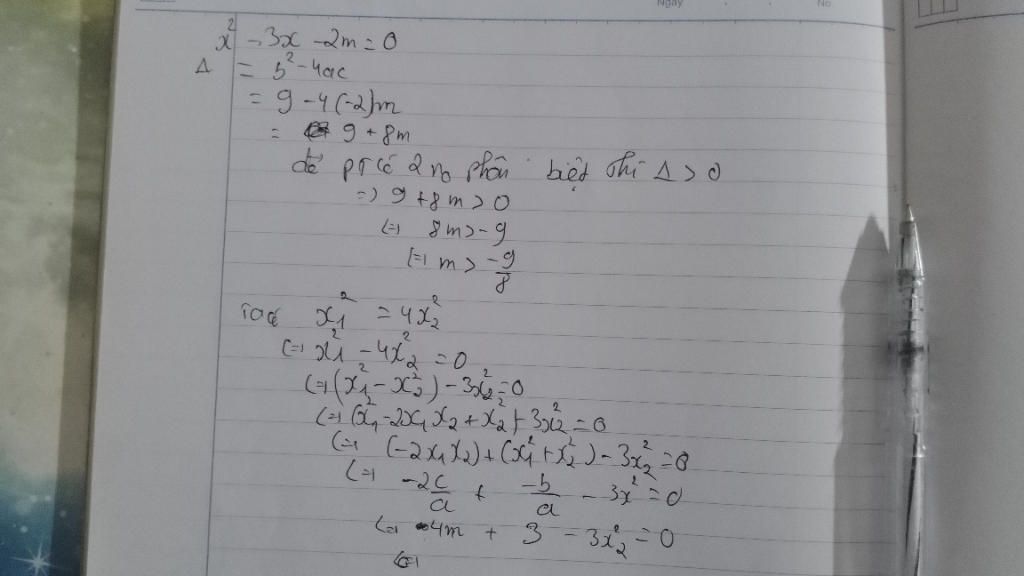 Ngày
No.
x² - 3x - 2m = 0
Δ = b² - 4ac
= 9 - 4(-2)m
= 9 + 8m
để PT có 2 n₀ phân biệt thì Δ > 0
=> 9 + 8m > 0
<=> 8m > -9
<=> m > -9/8
Ta có x₁² = 4x₂²
<=> x₁² - 4x₂² = 0
<=> (x₁² - x₂²) - 3x₂² = 0
<=> (x₁² - 2x₁x₂ + x₂²) - 3x₂² = 0
<=> (-2x₁x₂) + (x₁² + x₂²) - 3x₂² = 0
<=> -2c/a + -b/a - 3x² = 0
<=> 4m + 3 - 3x₂² = 0
<=>